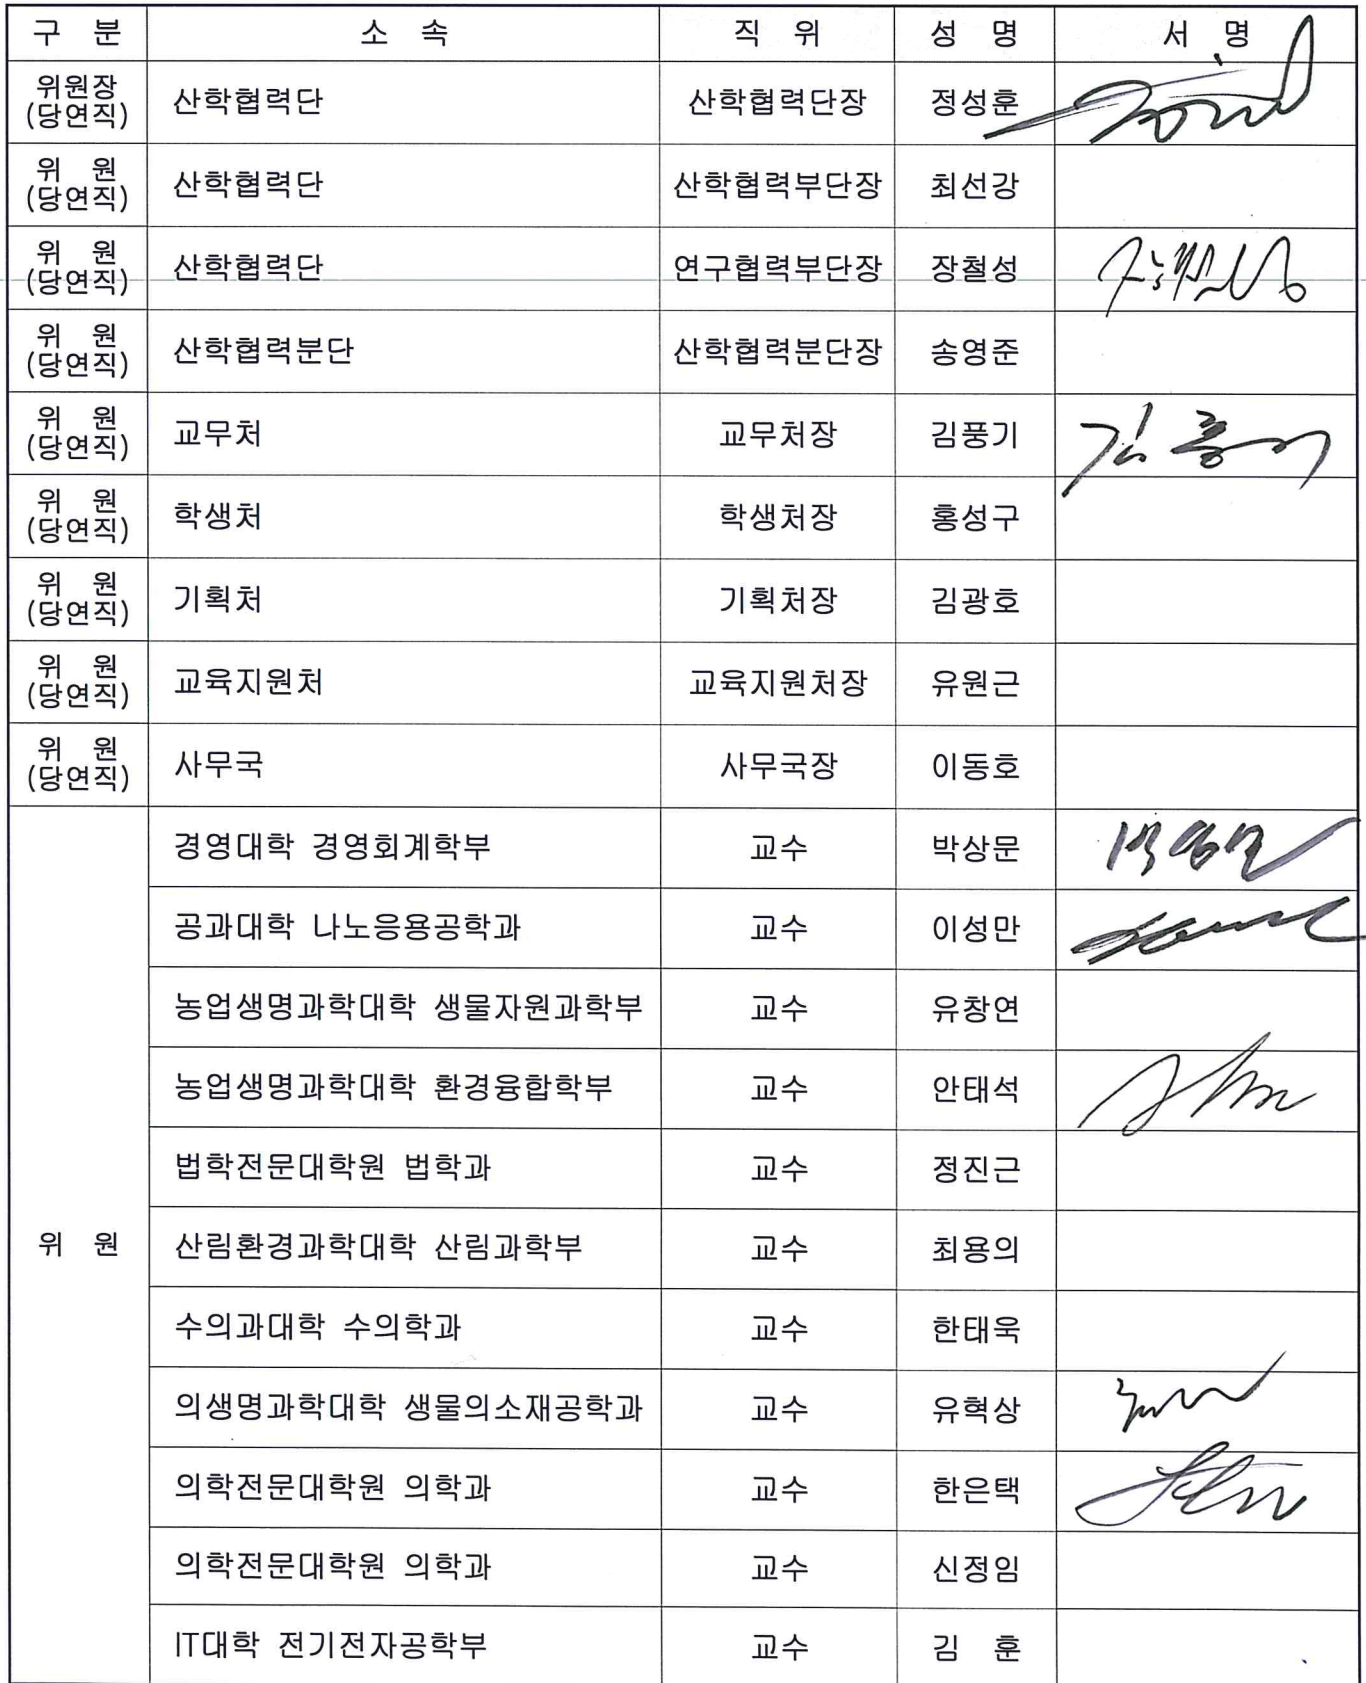 구 분 소 속 직 위 성 명 서 명
위원장
(당연직) 산학협력단 산학협력단장 정성훈
위 원
(당연직) 산학협력단 산학협력부단장 최선강
위 원
(당연직) 산학협력단 연구협력부단장 장철성
위 원
(당연직) 산학협력분단 산학협력분단장 송영준
위 원
(당연직) 교무처 교무처장 김풍기
위 원
(당연직) 학생처 학생처장 홍성구
위 원
(당연직) 기획처 기획처장 김광호
위 원
(당연직) 교육지원처 교육지원처장 유원근
위 원
(당연직) 사무국 사무국장 이동호
경영대학 경영회계학부 교수 박상문
공과대학 나노응용공학과 교수 이성만
농업생명과학대학 생물자원과학부 교수 유창연
농업생명과학대학 환경융합학부 교수 안태석
법학전문대학원 법학과 교수 정진근
위 원 산림환경과학대학 산림과학부 교수 최용의
수의과대학 수의학과 교수 한태욱
의생명과학대학 생물의소재공학과 교수 유혁상
의학전문대학원 의학과 교수 한은택
의학전문대학원 의학과 교수 신정임
IT대학 전기전자공학부 교수 김 훈